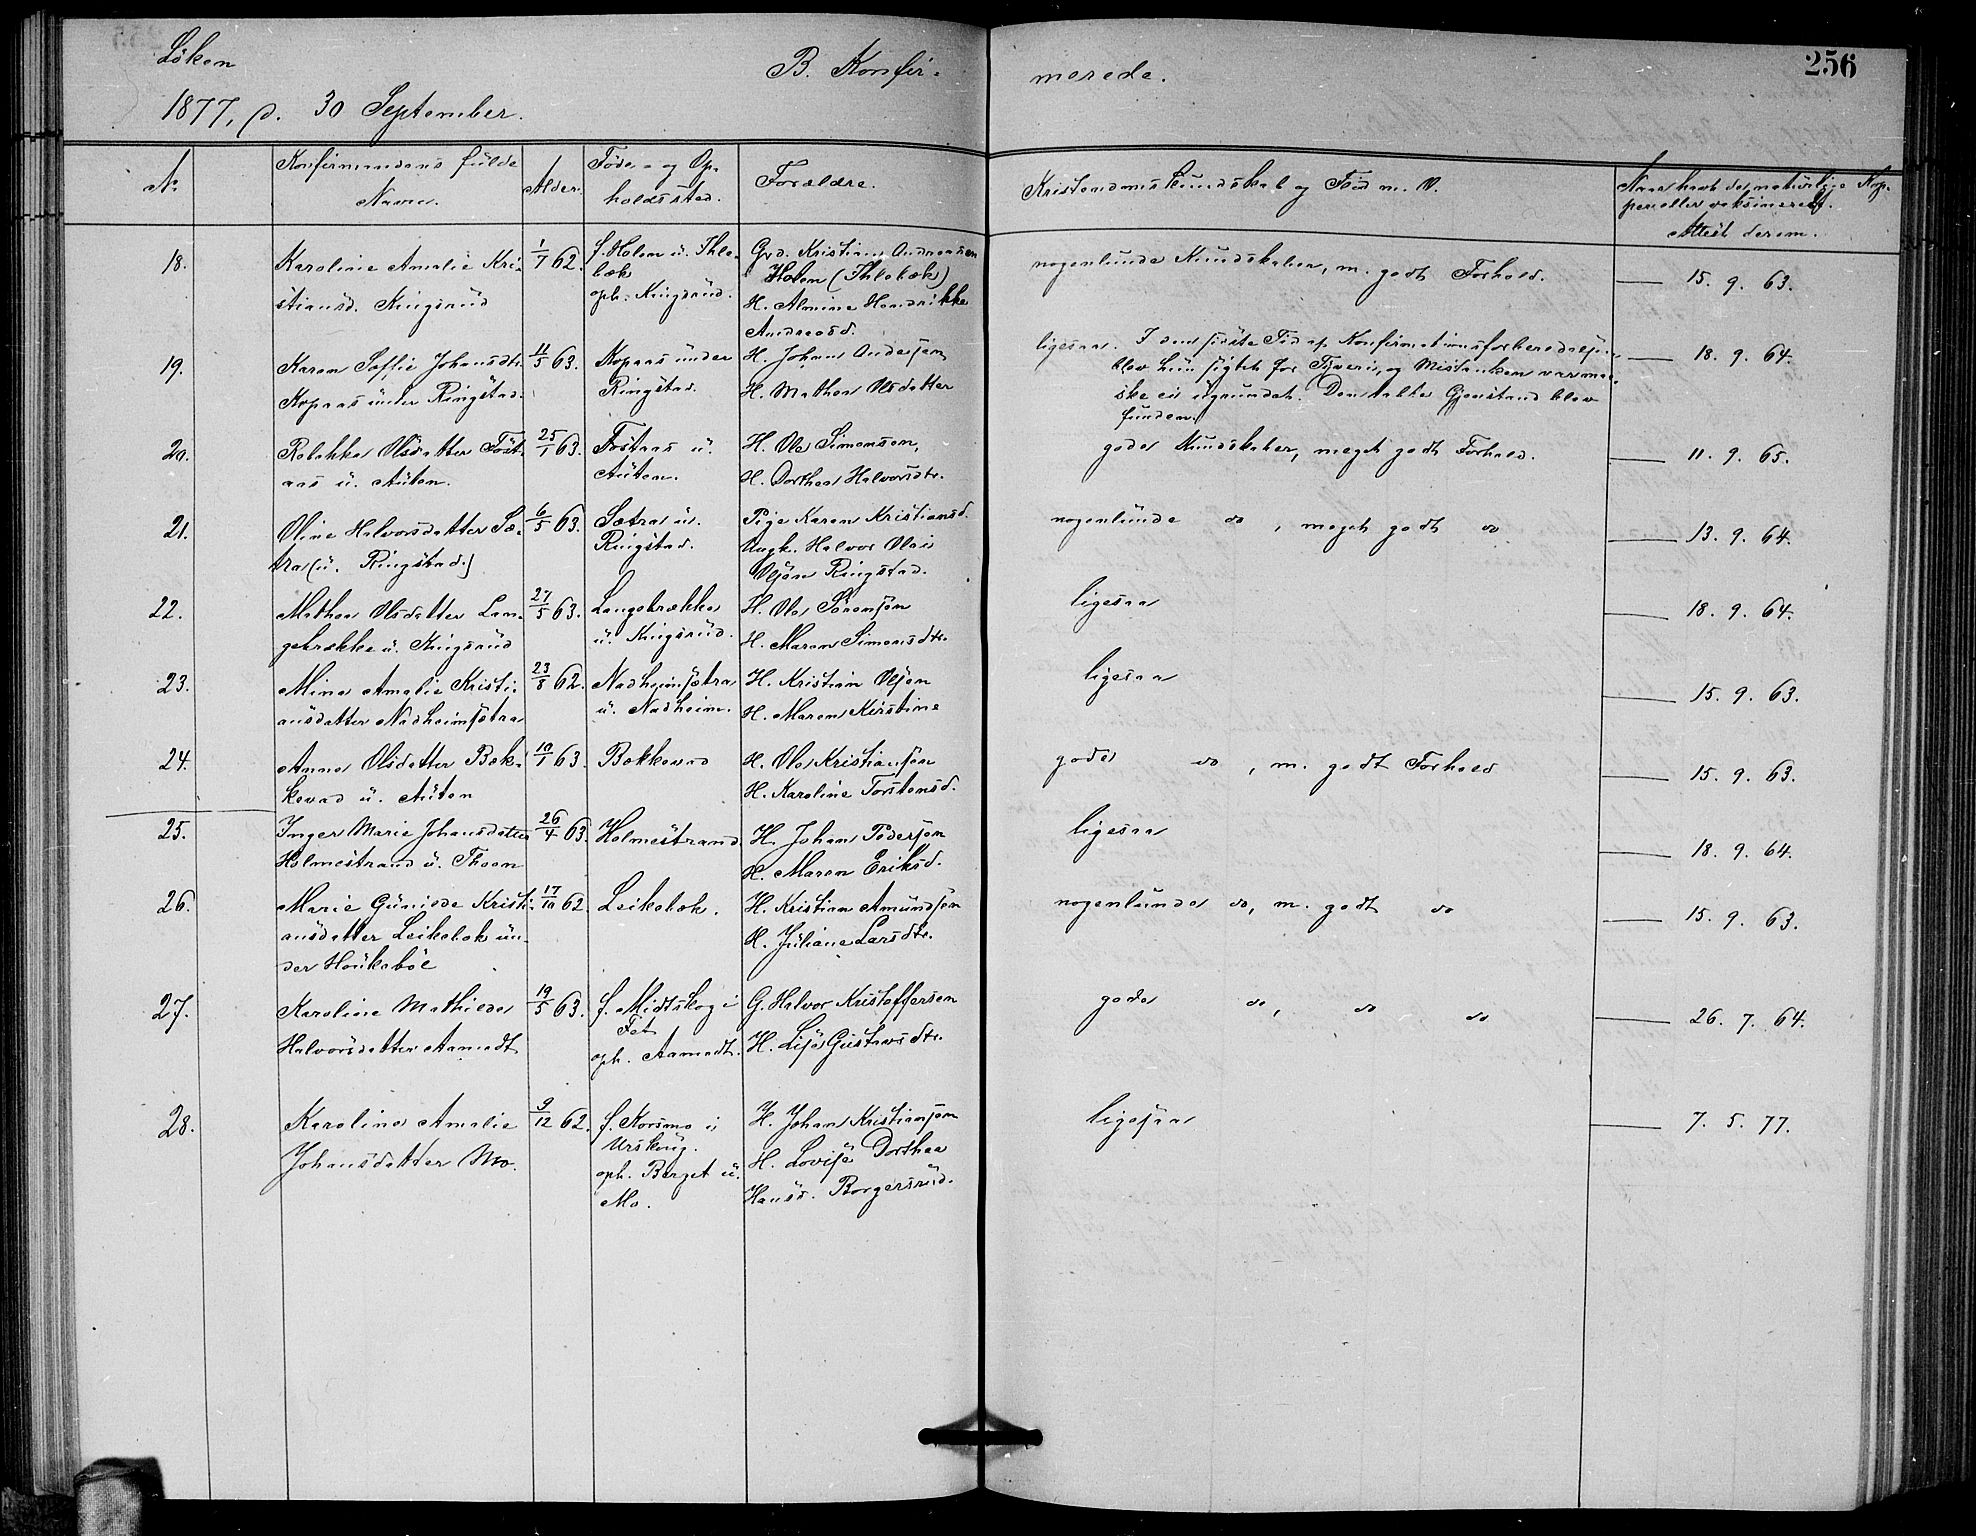 Löken
B. Konfir-
merede.
256
1877, d. 30 September.
No
Konfirmandens fulde
Navn.
Alder.
Föde- og Op-
holdssted.
Forældre.
Kristendomskundskab og Flid m. V.
Naar havt de naturlige Kop-
per eller vaksineret.
Attest derom.
18.
Karoline Amalie Kri-
stiansd. Kingsrud
1/7 62.
f. Holen u. Ihle-
bæk
oph. Kingsrud.
Grd. Kristian Andreasen
Holen (Ihlebæk)
H. Almine Hendrikke
Andreasd.
nogenlunde Kundskaber, m. godt Forhold.
— 15. 9. 63.
19.
Karen Soffie Johansdtr.
Kopaas under Ringstad.
11/5 63.
Kopaas under
Ringstad.
H. Johan Andersen
H. Mathea Olsdatter
ligesaa. I den sidste Tid af Konfirmationsforberedelsen
blev hun sigtet for Tyveri, og Mistanken var maa-
ske ei ugrundet. Den stalne Gjenstand blev
funden.
— 18. 9. 64.
20.
Rebekka Olsdatter Föst-
aas u. Auten.
25/1 63.
Föstaas u.
Auten.
H. Ole Simensen,
H. Dorthea Halvorsdtr.
gode Kundskaber, meget godt Forhold.
— 11. 9. 65.
21.
Oline Halvorsdatter Sæ-
tra (u. Ringstad.)
6/5 63.
Sætra u.
Ringstad.
Pige Karen Kristiansd.
Ungk. Halvor Olai
Olsen Ringstad.
nogenlunde do, meget godt do
— 13. 9. 64.
22.
Mathea Olsdatter Lan-
gebrække u. Kingsrud
27/5 63.
Langebrække
u. Kingsrud.
H. Ole Sörensen
H. Maren Simensdtr.
ligesaa
— 18. 9. 64.
23.
Mina Amalie Kristi-
ansdatter Nadheimsætra
23/8 62.
Nadheimsætra
u. Nadheim.
H. Kristian Olsen
H. Maren Kirstine
ligesaa
— 15. 9. 63.
24.
Anna Olsdatter Bæk-
kevad u. Auten
10/1 63.
Bækkevad
H. Ole Kristiansen
H. Karoline Torstensd.
gode do, m. godt Forhold
— 15. 9. 63.
25.
Inger Marie Johansdatter
Holmestrand u. Thoen
26/4 63.
Holmestrand
H. Johan Pedersen
H. Maren Eriksd.
ligesaa
— 18. 9. 64.
26.
Marie Gunilde Kristi-
ansdatter Leikebæk un-
der Haukebøl
17/10 62.
Leikebæk.
H. Kristian Amundsen
H. Juliane Larsdtr.
nogenlunde do, m. godt do
— 15. 9. 63.
27.
Karoline Mathilde
Halvorsdatter Aamodt
19/5 63.
f. Midtskog i
Fet
oph. Aamodt.
G. Halvor Kristoffersen
H. Lise Gustavsdtr.
gode do, do do
— 26. 7. 64.
28.
Karoline Amalie
Johansdatter Mo.
9/12 62.
f. Korsmo i
Urskoug.
oph. Berget u.
Mo.
H. Johan Kristiansen
H. Lovise Dorthea
Hansd. Borgersrud.
ligesaa
— 7. 5. 77.